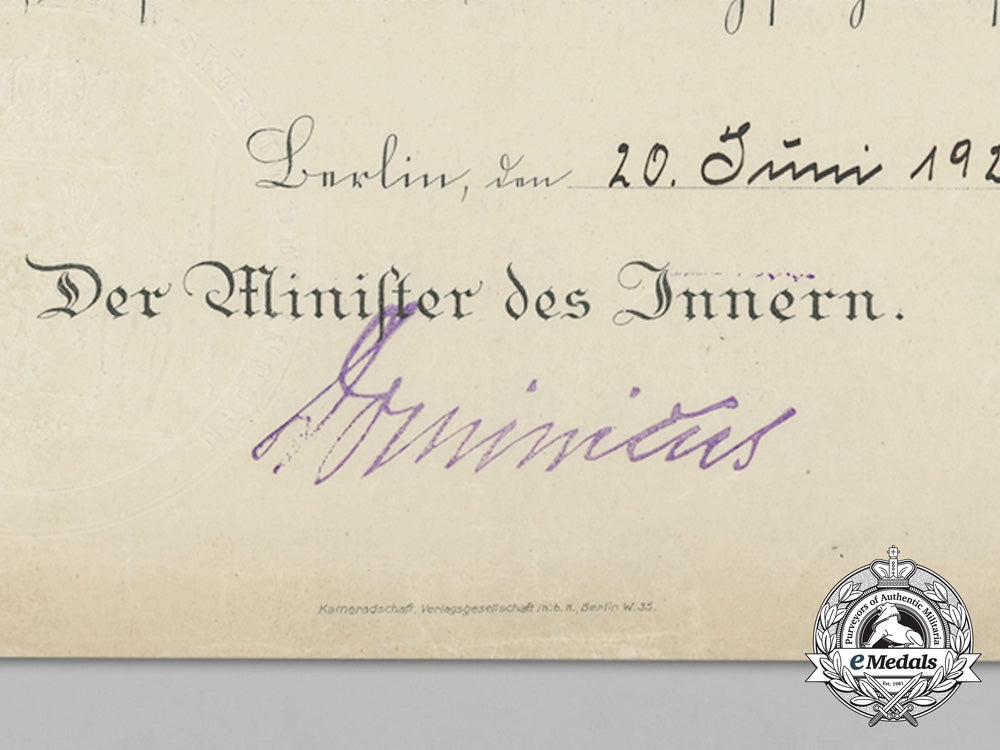 Berlin, den 20. Juni 192
Der Minister des Innern.
Dominicus
Kameradschaft, Verlagsgesellschaft m. b. H., Berlin W. 35.
Purveyors of Authentic Militaria
eMedals
Est. 1981